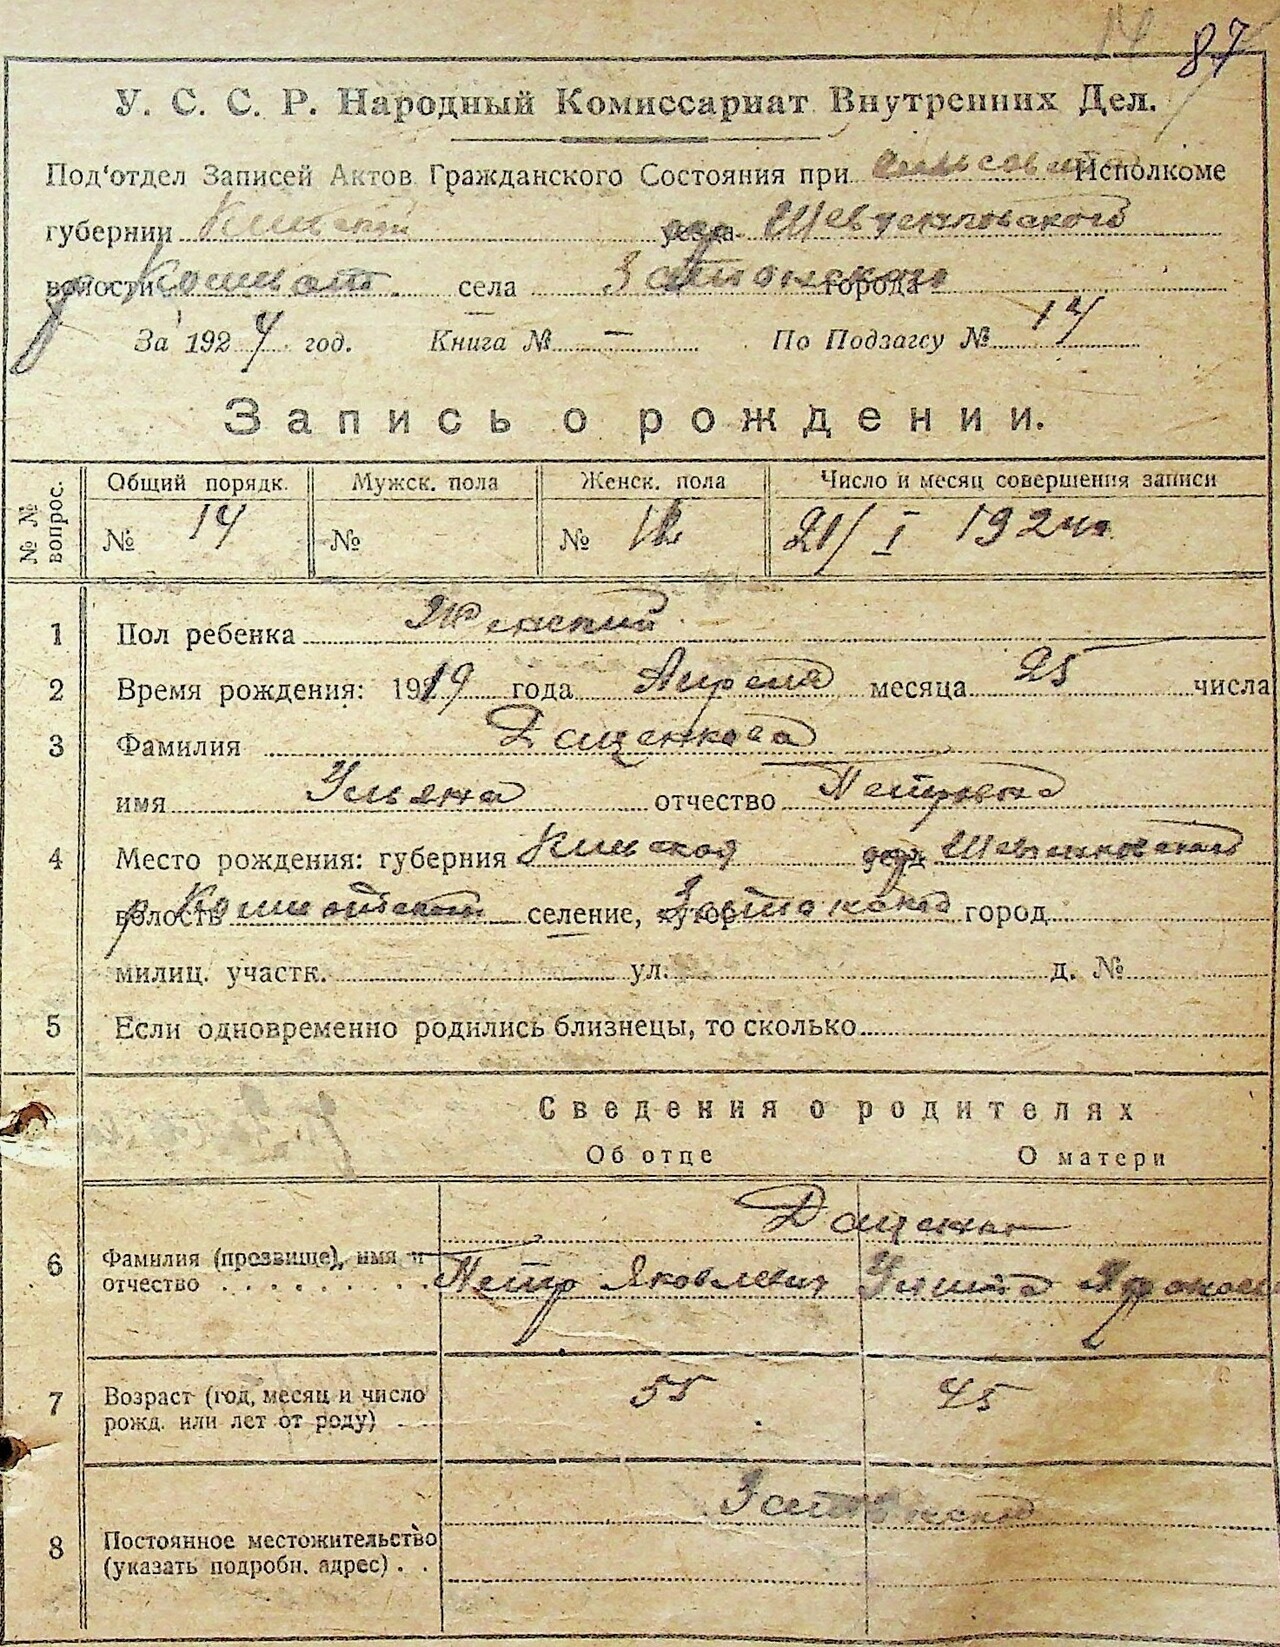 14 87
У. С. С. Р. Народный Комиссариат Внутренних Дел.
Под‘отдел Записей Актов Гражданского Состояния при сельсовета Исполкоме
губернии Киевской уезда Шевченковского
волости села города
За 1924 год. Книга № — По Подзагсу № 14
Запись о рождении.
№ № вопрос. Общий порядк. Мужск. пола Женск. пола Число и месяц совершения записи
№ 14 № № 21/I 1924
1 Пол ребенка Женский
2 Время рождения: 1919 года Апреля месяца 25 числа
3 Фамилия Даценкова
имя Ульяна отчество Петровна
4 Место рождения: губерния Киевская Шевченковского
волость селение, хутор город
милиц. участк. ул. д. №
5 Если одновременно родились близнецы, то сколько
Сведения о родителях
Об отце О матери
Даценко
6 Фамилия (прозвище), имя и
отчество Петр Яковлевич
7 Возраст (год, месяц и число
рожд. или лет от роду) 55 45
8 Постоянное местожительство
(указать подробн. адрес)